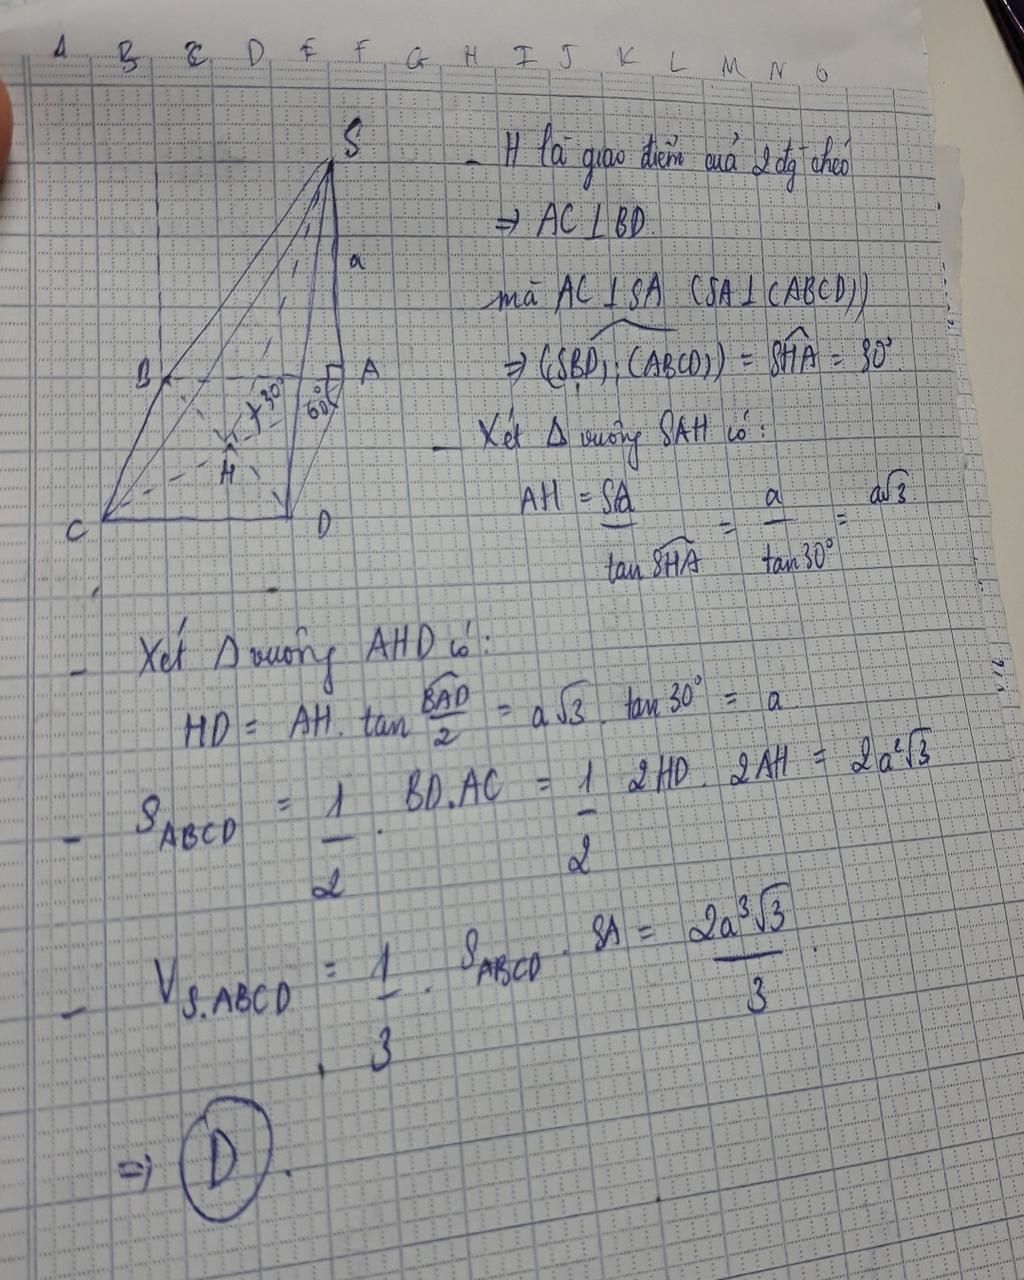 A B C D E F G H I J K L M N O
S
a
B
A
30°
60°
H
C
D
- H là giao điểm của 2 đg chéo
⇒ AC ⊥ BD.
mà AC ⊥ SA (SA ⊥ (ABCD))
⇒ ((SBD);(ABCD)) = SHA = 30°
- Xét Δ vuông SAH có:
AH = SA / tan SHA = a / tan 30° = a√3
- Xét Δ vuông AHD có:
HD = AH. tan BAD/2 = a√3. tan 30° = a
- S_ABCD = 1/2 . BD.AC = 1/2 2HD. 2AH = 2a²√3
- V_S.ABCD = 1/3 . S_ABCD . SA = 2a³√3/3.
⇒ D.